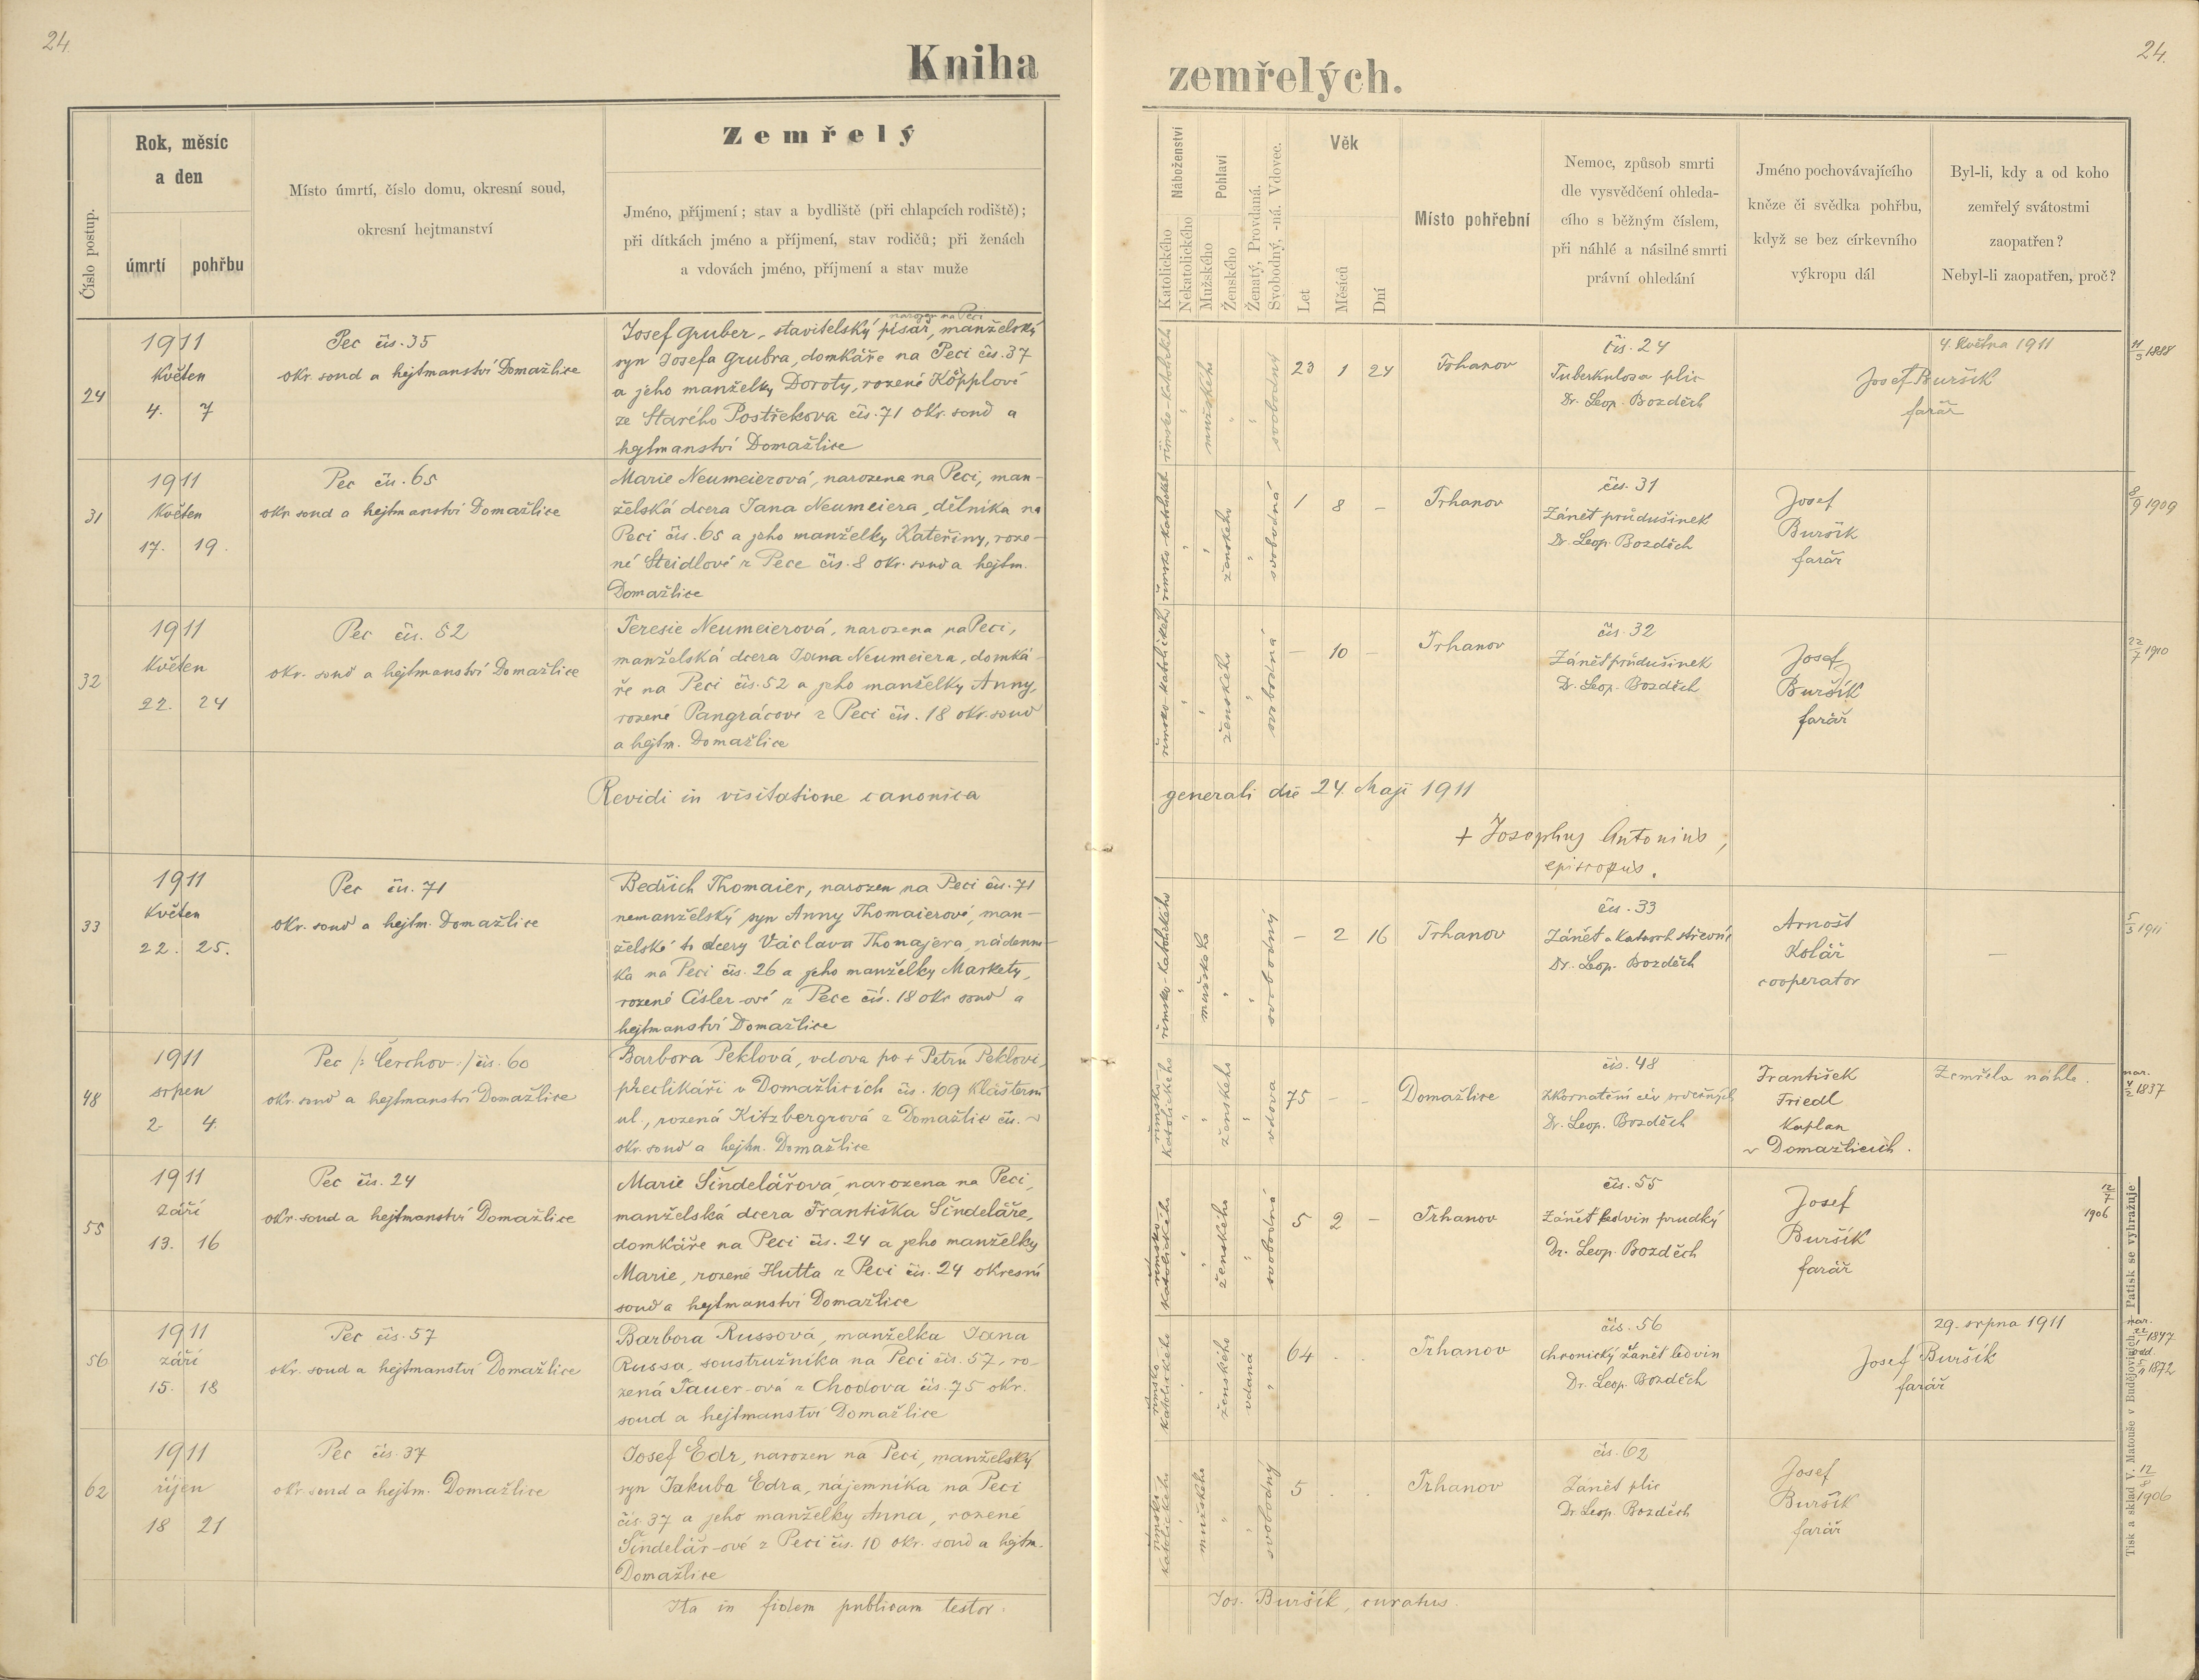 24.
Kniha
zemřelých.
24.
Číslo postup.
Rok, měsíc
a den
úmrtí
pohřbu
Místo úmrtí, číslo domu, okresní soud,
okresní hejtmanství
Zemřelý
Jméno, příjmení; stav a bydliště (při chlapcích rodiště);
při dítkách jméno a příjmení, stav rodičů; při ženách
a vdovách jméno, příjmení a stav muže
Náboženství
Katolického
Nekatolického
Pohlaví
Mužského
Ženského
Ženatý, Provdaná.
Svobodný, -ná. Vdovec.
Věk
Let
Měsíců
Dní
Místo pohřební
Nemoc, způsob smrti
dle vysvědčení ohleda-
cího s běžným číslem,
při náhlé a násilné smrti
právní ohledání
Jméno pochovávajícího
kněze či svědka pohřbu,
když se bez církevního
výkropu dál
Byl-li, kdy a od koho
zemřelý svátostmi
zaopatřen?
Nebyl-li zaopatřen, proč?
24
1911
Květen
4. 7
Pec čís. 35
okr. soud a hejtmanství Domažlice
narozen na Peci
Josef Gruber, stavitelský písař, manželský
syn Josefa Grubra, domkáře na Peci čís. 37
a jeho manželky Doroty, rozené Köpplové
ze Starého Postřekova čís. 71 okr. soud a
hejtmanství Domažlice
římsko-katolického
mužského
svobodný
23 1 24
Trhanov
čís. 24
Tuberkulosa plic
Dr. Leop. Bozděch
4. Května 1911
Josef Buršík
farář
11/3 1888
31
1911
Květen
17. 19.
Pec čís. 65
okr. soud a hejtmanství Domažlice
Marie Neumeierová, narozena na Peci, man-
želská dcera Jana Neumeiera, dělníka na
Peci čís. 65 a jeho manželky Kateřiny, roze-
né Steidlové z Pece čís. 8 okr. soud a hejtm.
Domažlice
ženského
svobodná
1 8 -
Trhanov
čís. 31
Zánět průdušinek
Dr. Leop. Bozděch
Josef
Buršík
farář
8/9 1909
32
1911
Květen
22. 24
Pec čís. 52
okr. soud a hejtmanství Domažlice
Teresie Neumeierová, narozena na Peci,
manželská dcera Jana Neumeiera, domká-
ře na Peci čís. 52 a jeho manželky Anny,
rozené Pangrácové z Peci čís. 18 okr. soud
a hejtm. Domažlice
římsko-katolického
ženského
svobodná
- 10 -
Trhanov
čís. 32
Zánět průdušinek
Dr. Leop. Bozděch
Josef
Buršík
farář
22/7 1910
Revidi in visitatione canonica
generali die 24. Maji 1911
+ Josephus Antonius,
episcopus.
33
1911
Květen
22. 25.
Pec čís. 71
okr. soud a hejtm. Domažlice
Bedřich Thomaier, narozen na Peci čís. 71
nemanželský syn Anny Thomaierové, man-
želské to dcery Václava Thomajera, nádenní-
ka na Peci čís. 26 a jeho manželky Markety,
rozené Cisler-ové z Pece čís. 18 okr. soud a
hejtmanství Domažlice
římsko-katolického
mužského
svobodný
- 2 16
Trhanov
čís. 33
Zánět a Katarrh střevní
Dr. Leop. Bozděch
Arnošt
Kolář
cooperator
—
5/3 1911
48
1911
srpen
2 4.
Pec /: Čerchov :/ čís. 60
okr. soud a hejtmanství Domažlice
Barbora Peklová, vdova po + Petru Peklovi,
preclikáři v Domažlicích čís. 109 Klášterní
ul., rozená Kitzbergrová z Domažlic čís. ~
okr. soud a hejtm. Domažlice
římsko
katolického
ženského
vdova
75 - -
Domažlice
čís. 48
Zkornatění cév srdečných
Dr. Leop. Bozděch
František
Friedl
Kaplan
v Domažlicích.
Zemřela náhle.
nar.
4/2 1837
55
1911
září
13. 16
Pec čís. 24
okr. soud a hejtmanství Domažlice
Marie Šindelářová, narozena na Peci,
manželská dcera Františka Šindeláře,
domkáře na Peci čís. 24 a jeho manželky
Marie, rozené Hutta z Peci čís. 24 okresní
soud a hejtmanství Domažlice
římsko
katolického
ženského
svobodná
5 2 -
Trhanov
čís. 55
Zánět ledvin prudký
Dr. Leop. Bozděch
Josef
Buršík
farář
12/7
1906
56
1911
září
15. 18
Pec čís. 57
okr. soud a hejtmanství Domažlice
Barbora Russová, manželka Jana
Russa, soustružníka na Peci čís. 57, ro-
zená Tauer-ová z Chodova čís. 75 okr.
soud a hejtmanství Domažlice
římsko-
katolického
ženského
vdaná
64 . .
Trhanov
čís. 56
Chronický zánět ledvin
Dr. Leop. Bozděch
29. srpna 1911
Josef Buršík
farář
nar.
1847
odd.
1872
62
1911
říjen
18 21
Pec čís. 37
okr. soud a hejtm. Domažlice
Josef Edr, narozen na Peci, manželský
syn Jakuba Edra, nájemníka na Peci
čís. 37 a jeho manželky Anna, rozené
Šindelář-ové z Peci čís. 10 okr. soud a hejtm.
Domažlice
římsko-
katolického
mužského
svobodný
5 . .
Trhanov
čís. 62
Zánět plic
Dr. Leop. Bozděch
Josef
Buršík
farář
12/8
1906
Ita in fidem publicam testor:
Jos. Buršík, curatus.
Tisk a sklad V. Matouše v Budějovicích. Patisk se vyhražuje.